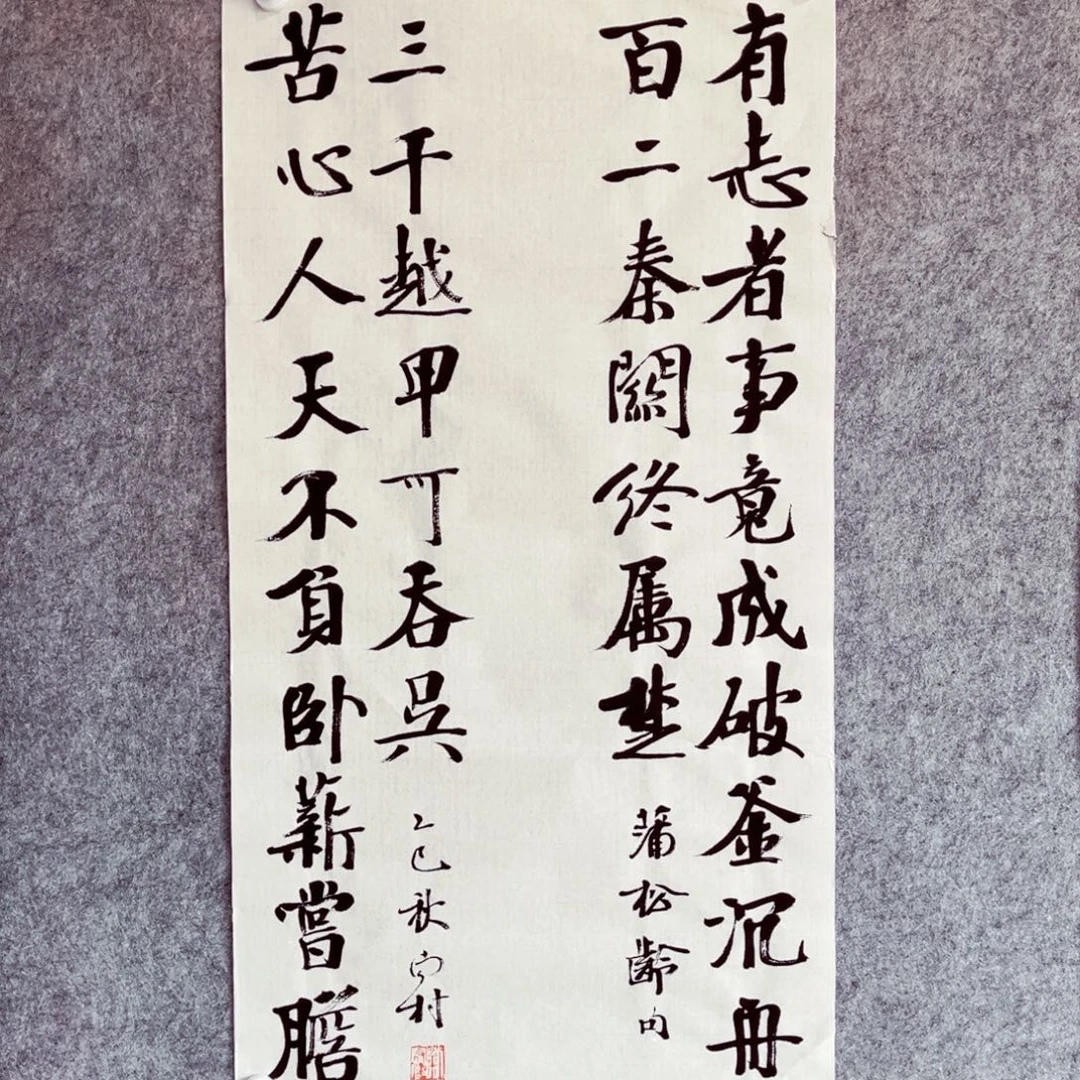 有志者事竟成破釜沉舟
百二秦關終属楚
蒲松齡句
苦心人天不負卧薪嘗膽
三千越甲可吞吳
乙巳秋 村